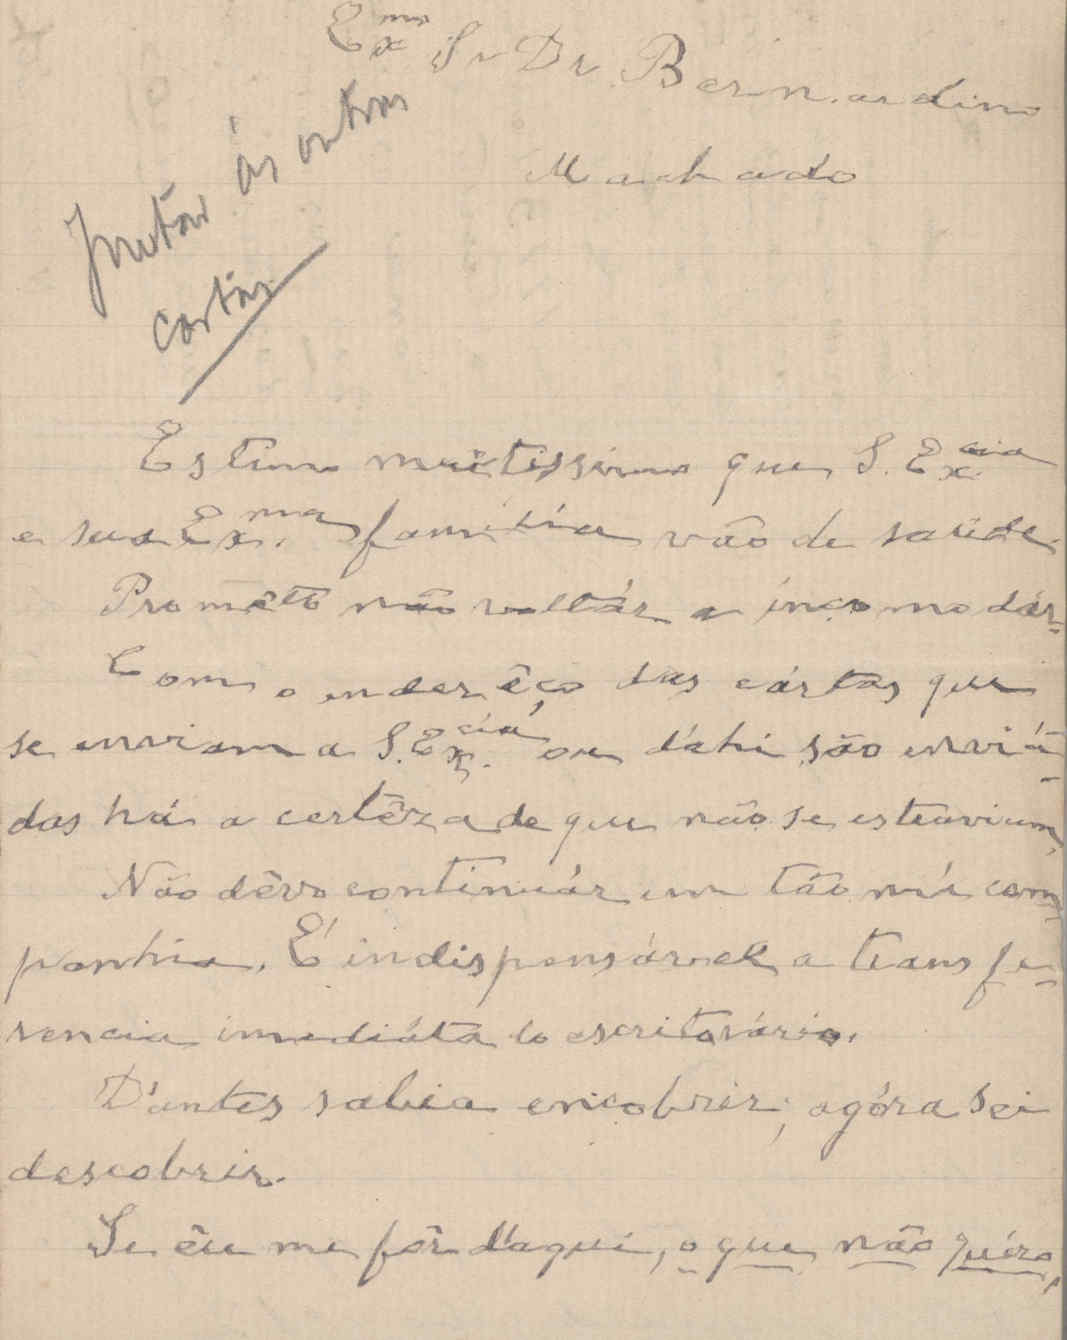 Exmo Sr Dr. Bernardino
Machado
Juntar ás outras
cartas
Estimo muitissimo que S. Excia
e sua Exma. familia vão de saúde.
Promêto não voltár a incomodár-
Com o enderêço das cártas que
se enviam a S. Excia, ou d'ahi são enviá-
das há a certêza de que não se estraviam,
Não dêvo continuár em tão má com-
panhia. É indispensável a transfe-
rencia imediáta do escritorário.
D'antes sabia encobrir; agóra sei
descobrir.
Se êu me fôr d'aqui, o que não quéro,